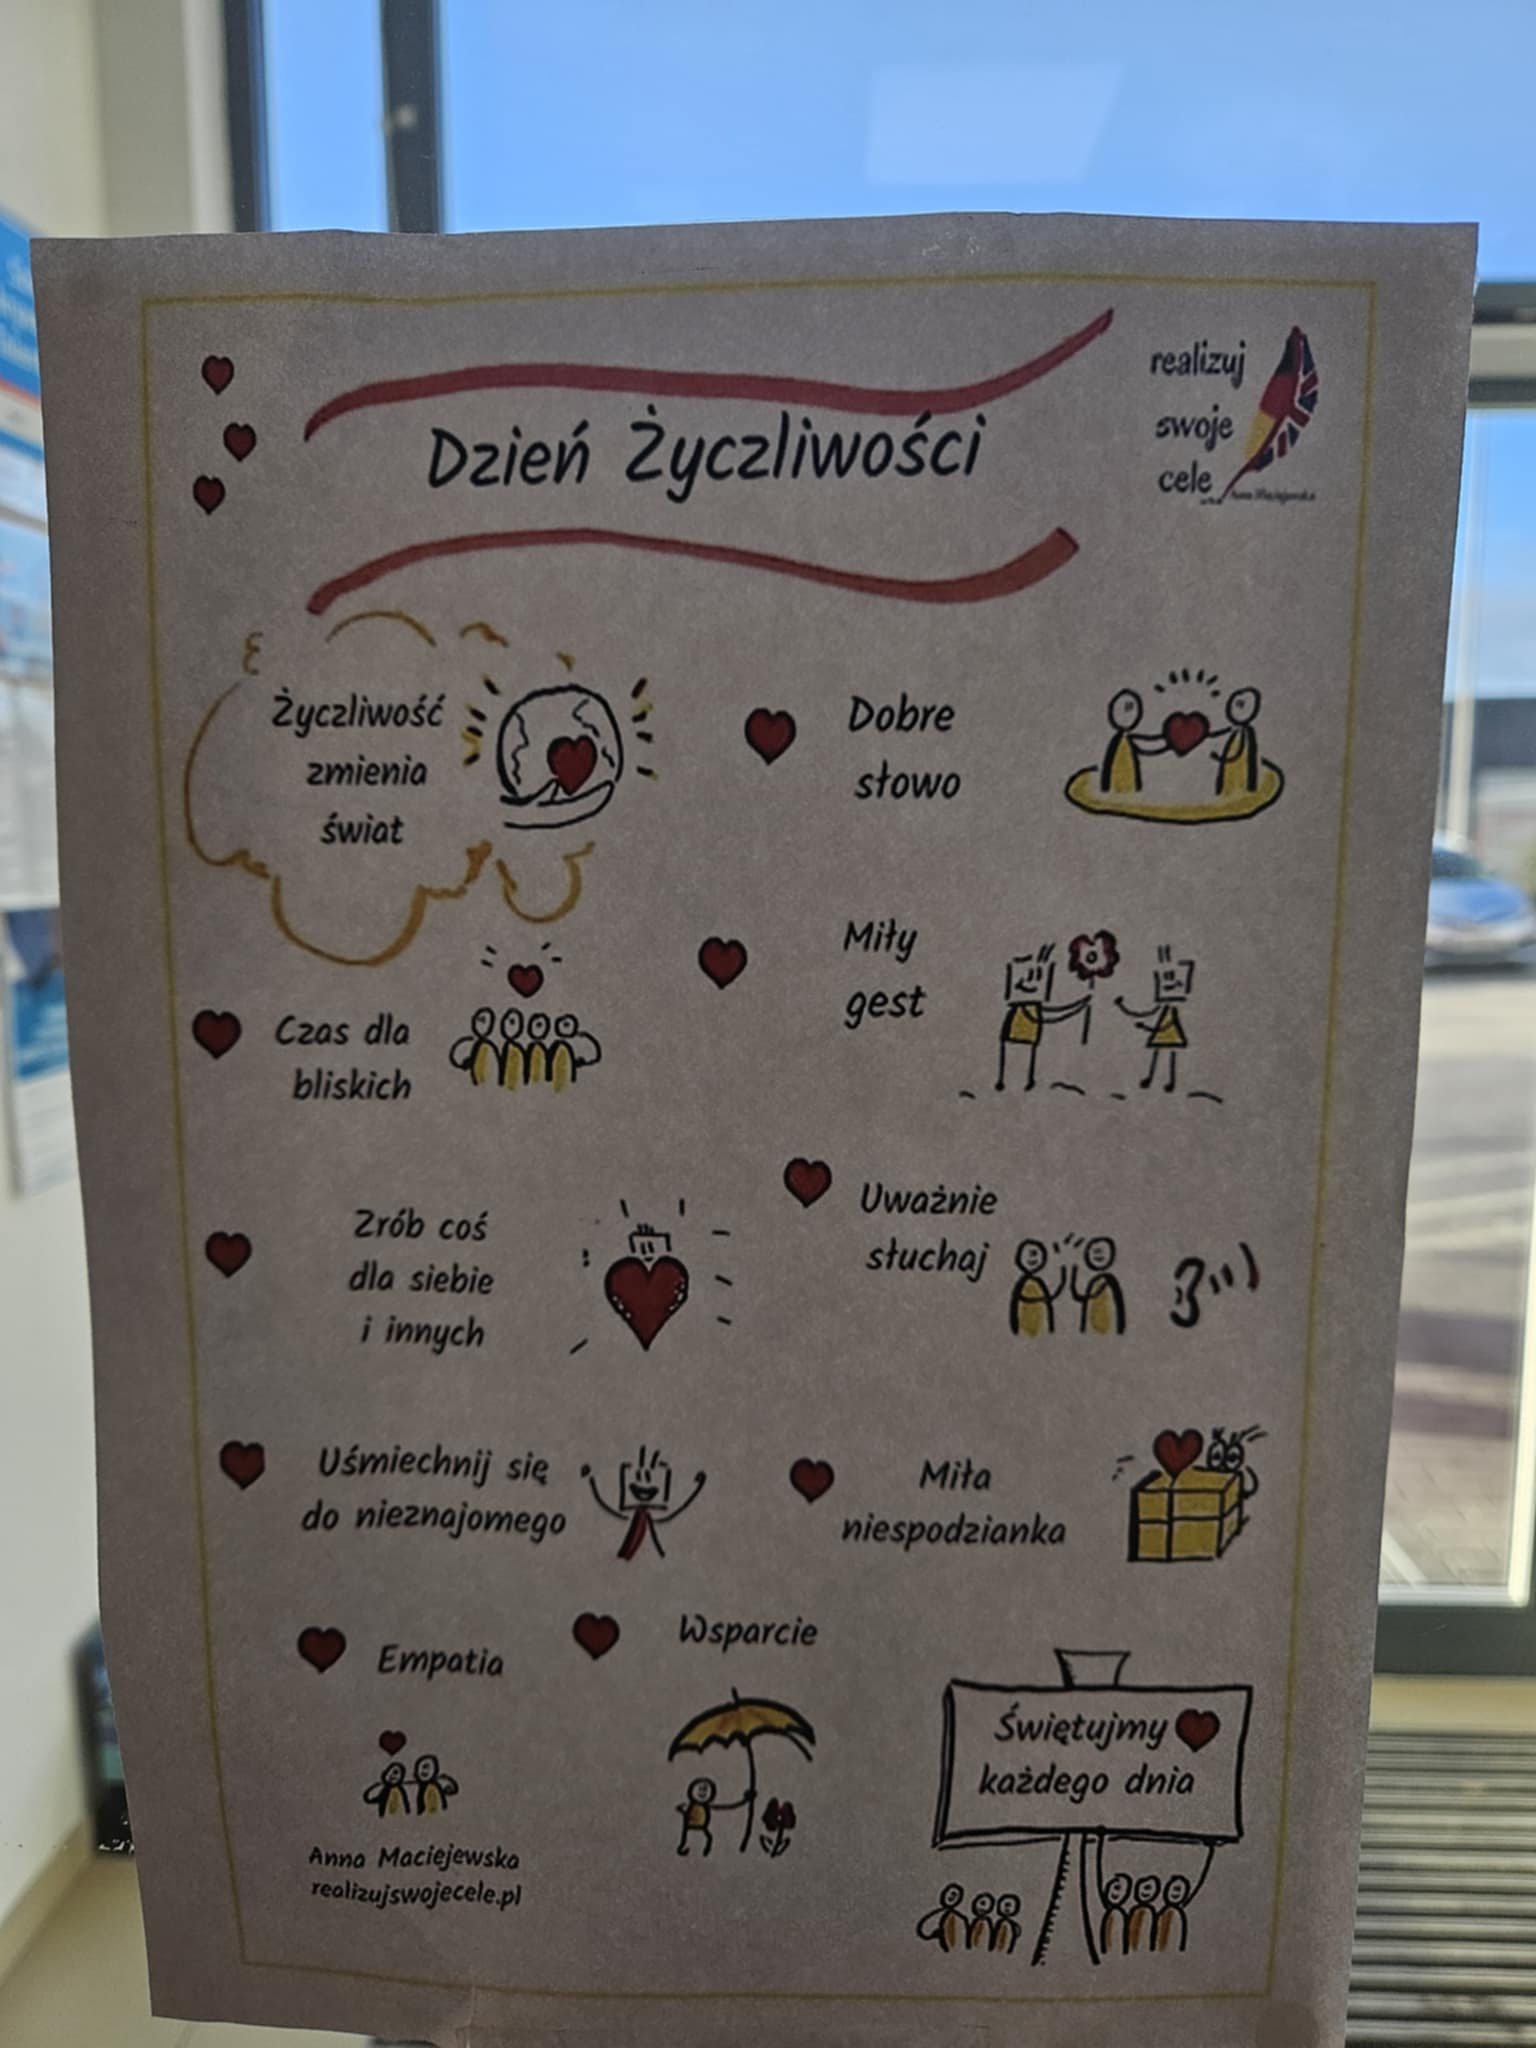 Dzień Życzliwości
realizuj
swoje
cele
Życzliwość
zmienia
świat
Dobre
słowo
Miły
gest
Czas dla
bliskich
Zrób coś
dla siebie
i innych
Uważnie
słuchaj
Uśmiechnij się
do nieznajomego
Miła
niespodzianka
Empatia
Wsparcie
Świętujmy
każdego dnia
Anna Maciejewska
realizujswojecele.pl